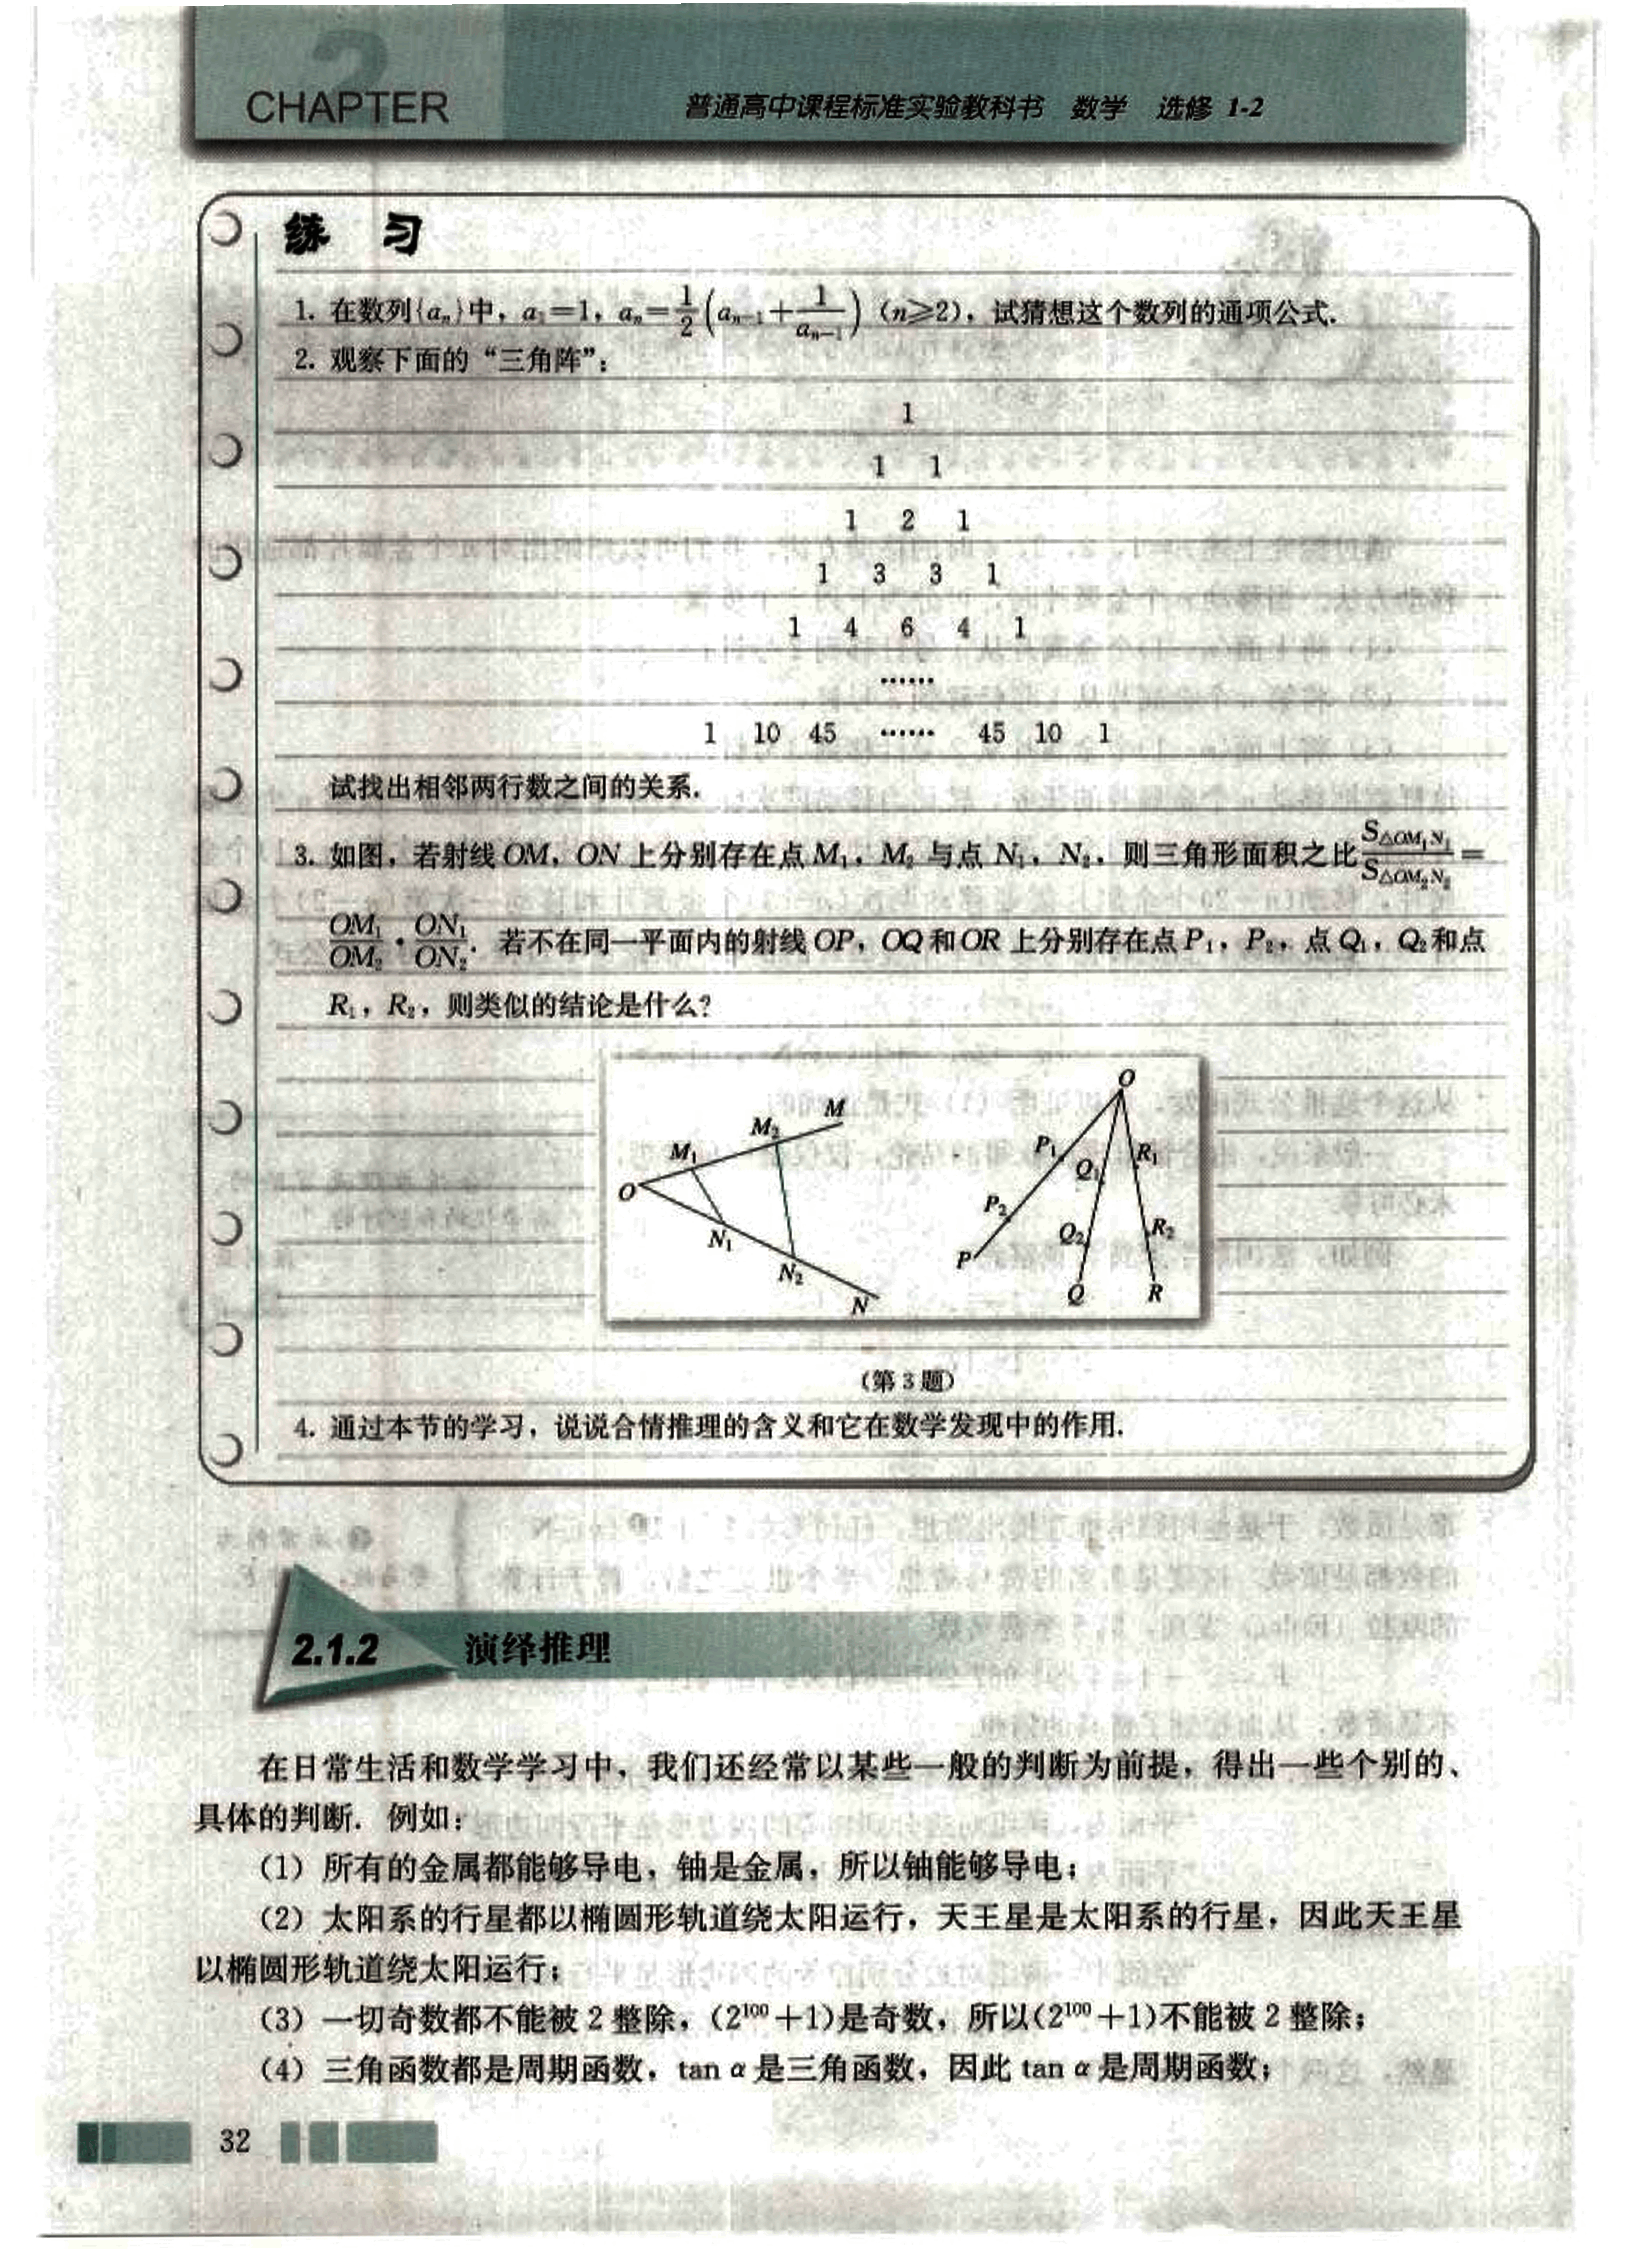 2
CHAPTER
普通高中课程标准实验教科书 数学 选修 1-2
练 习
1. 在数列{aₙ}中，a₁=1，aₙ=\frac{1}{2}(aₙ₋₁+\frac{1}{aₙ₋₁})（n≥2），试猜想这个数列的通项公式.
2. 观察下面的“三角阵”：
1
1 1
1 2 1
1 3 3 1
1 4 6 4 1
……
1 10 45 …… 45 10 1
试找出相邻两行数之间的关系.
3. 如图，若射线OM，ON上分别存在点M₁，M₂与点N₁，N₂，则三角形面积之比\frac{S_{△OM₁N₁}}{S_{△OM₂N₂}}=
\frac{OM₁}{OM₂}·\frac{ON₁}{ON₂}. 若不在同一平面内的射线OP，OQ和OR上分别存在点P₁，P₂，点Q₁，Q₂和点
R₁，R₂，则类似的结论是什么?
O M₁ M₂ M N₁ N₂ N
O P₁ P₂ P Q₁ Q₂ Q R₁ R₂ R
（第3题）
4. 通过本节的学习，说说合情推理的含义和它在数学发现中的作用.
2.1.2 演绎推理
在日常生活和数学学习中，我们还经常以某些一般的判断为前提，得出一些个别的、
具体的判断. 例如：
（1）所有的金属都能够导电，铀是金属，所以铀能够导电；
（2）太阳系的行星都以椭圆形轨道绕太阳运行，天王星是太阳系的行星，因此天王星
以椭圆形轨道绕太阳运行；
（3）一切奇数都不能被2整除，(2¹⁰⁰+1)是奇数，所以(2¹⁰⁰+1)不能被2整除；
（4）三角函数都是周期函数，tan α是三角函数，因此tan α是周期函数；
32